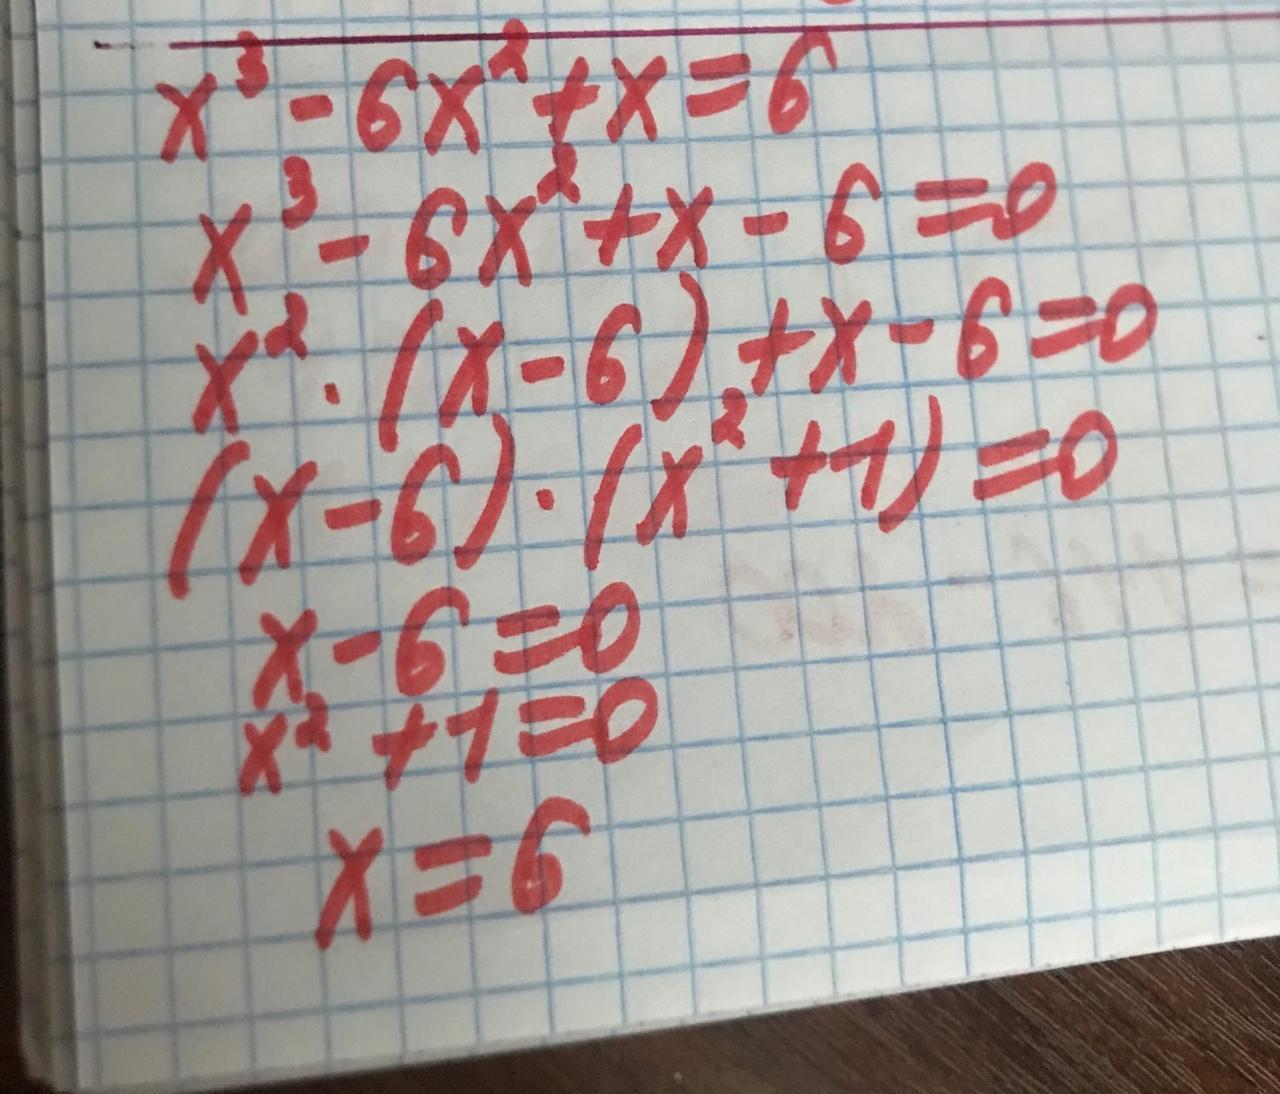 x³ - 6x² + x = 6
x³ - 6x² + x - 6 = 0
x² · (x - 6) + x - 6 = 0
(x - 6) · (x² + 1) = 0
x - 6 = 0
x² + 1 = 0
x = 6